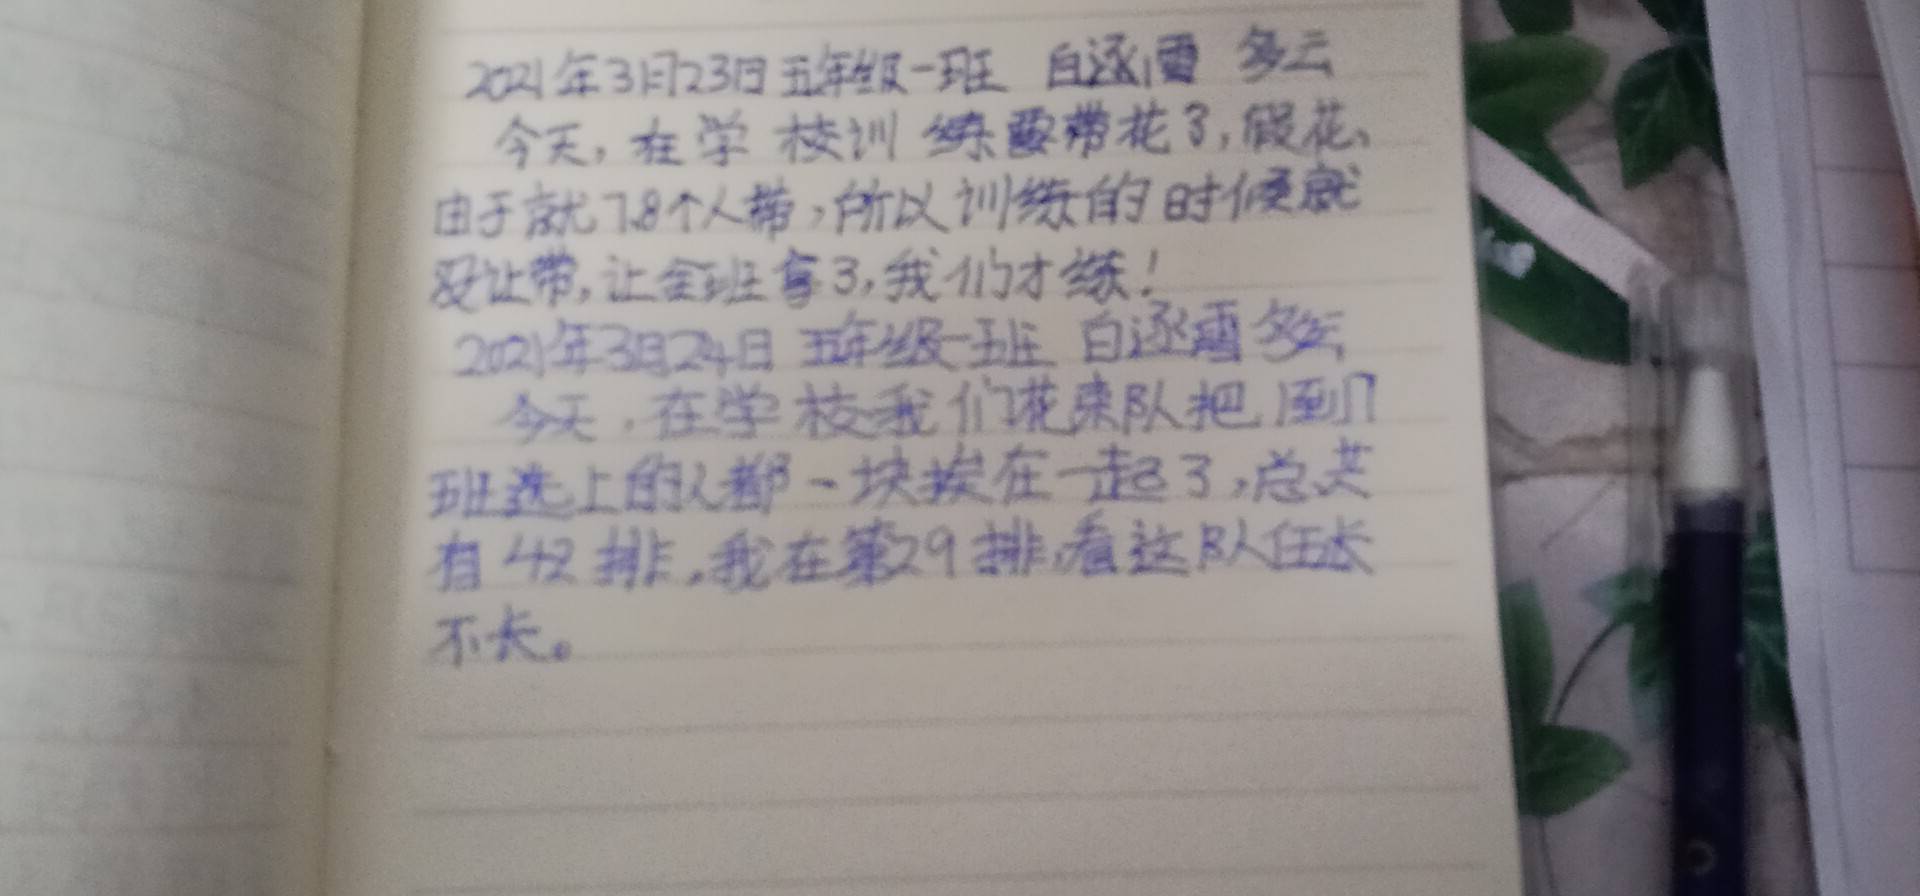 2021年3月23日五年级一班 白逐雪 多云
今天,在学校训练要带花了,假花、
由于就7.8个人带,所以训练的时候就
没让带,让全班拿了,我们才练!
2021年3月24日 五年级一班 白逐雪 多云
今天,在学校我们花束队把
班选上的人都一块挨在一起了,总共
有42排,我在第29排,看这队伍长
不长。